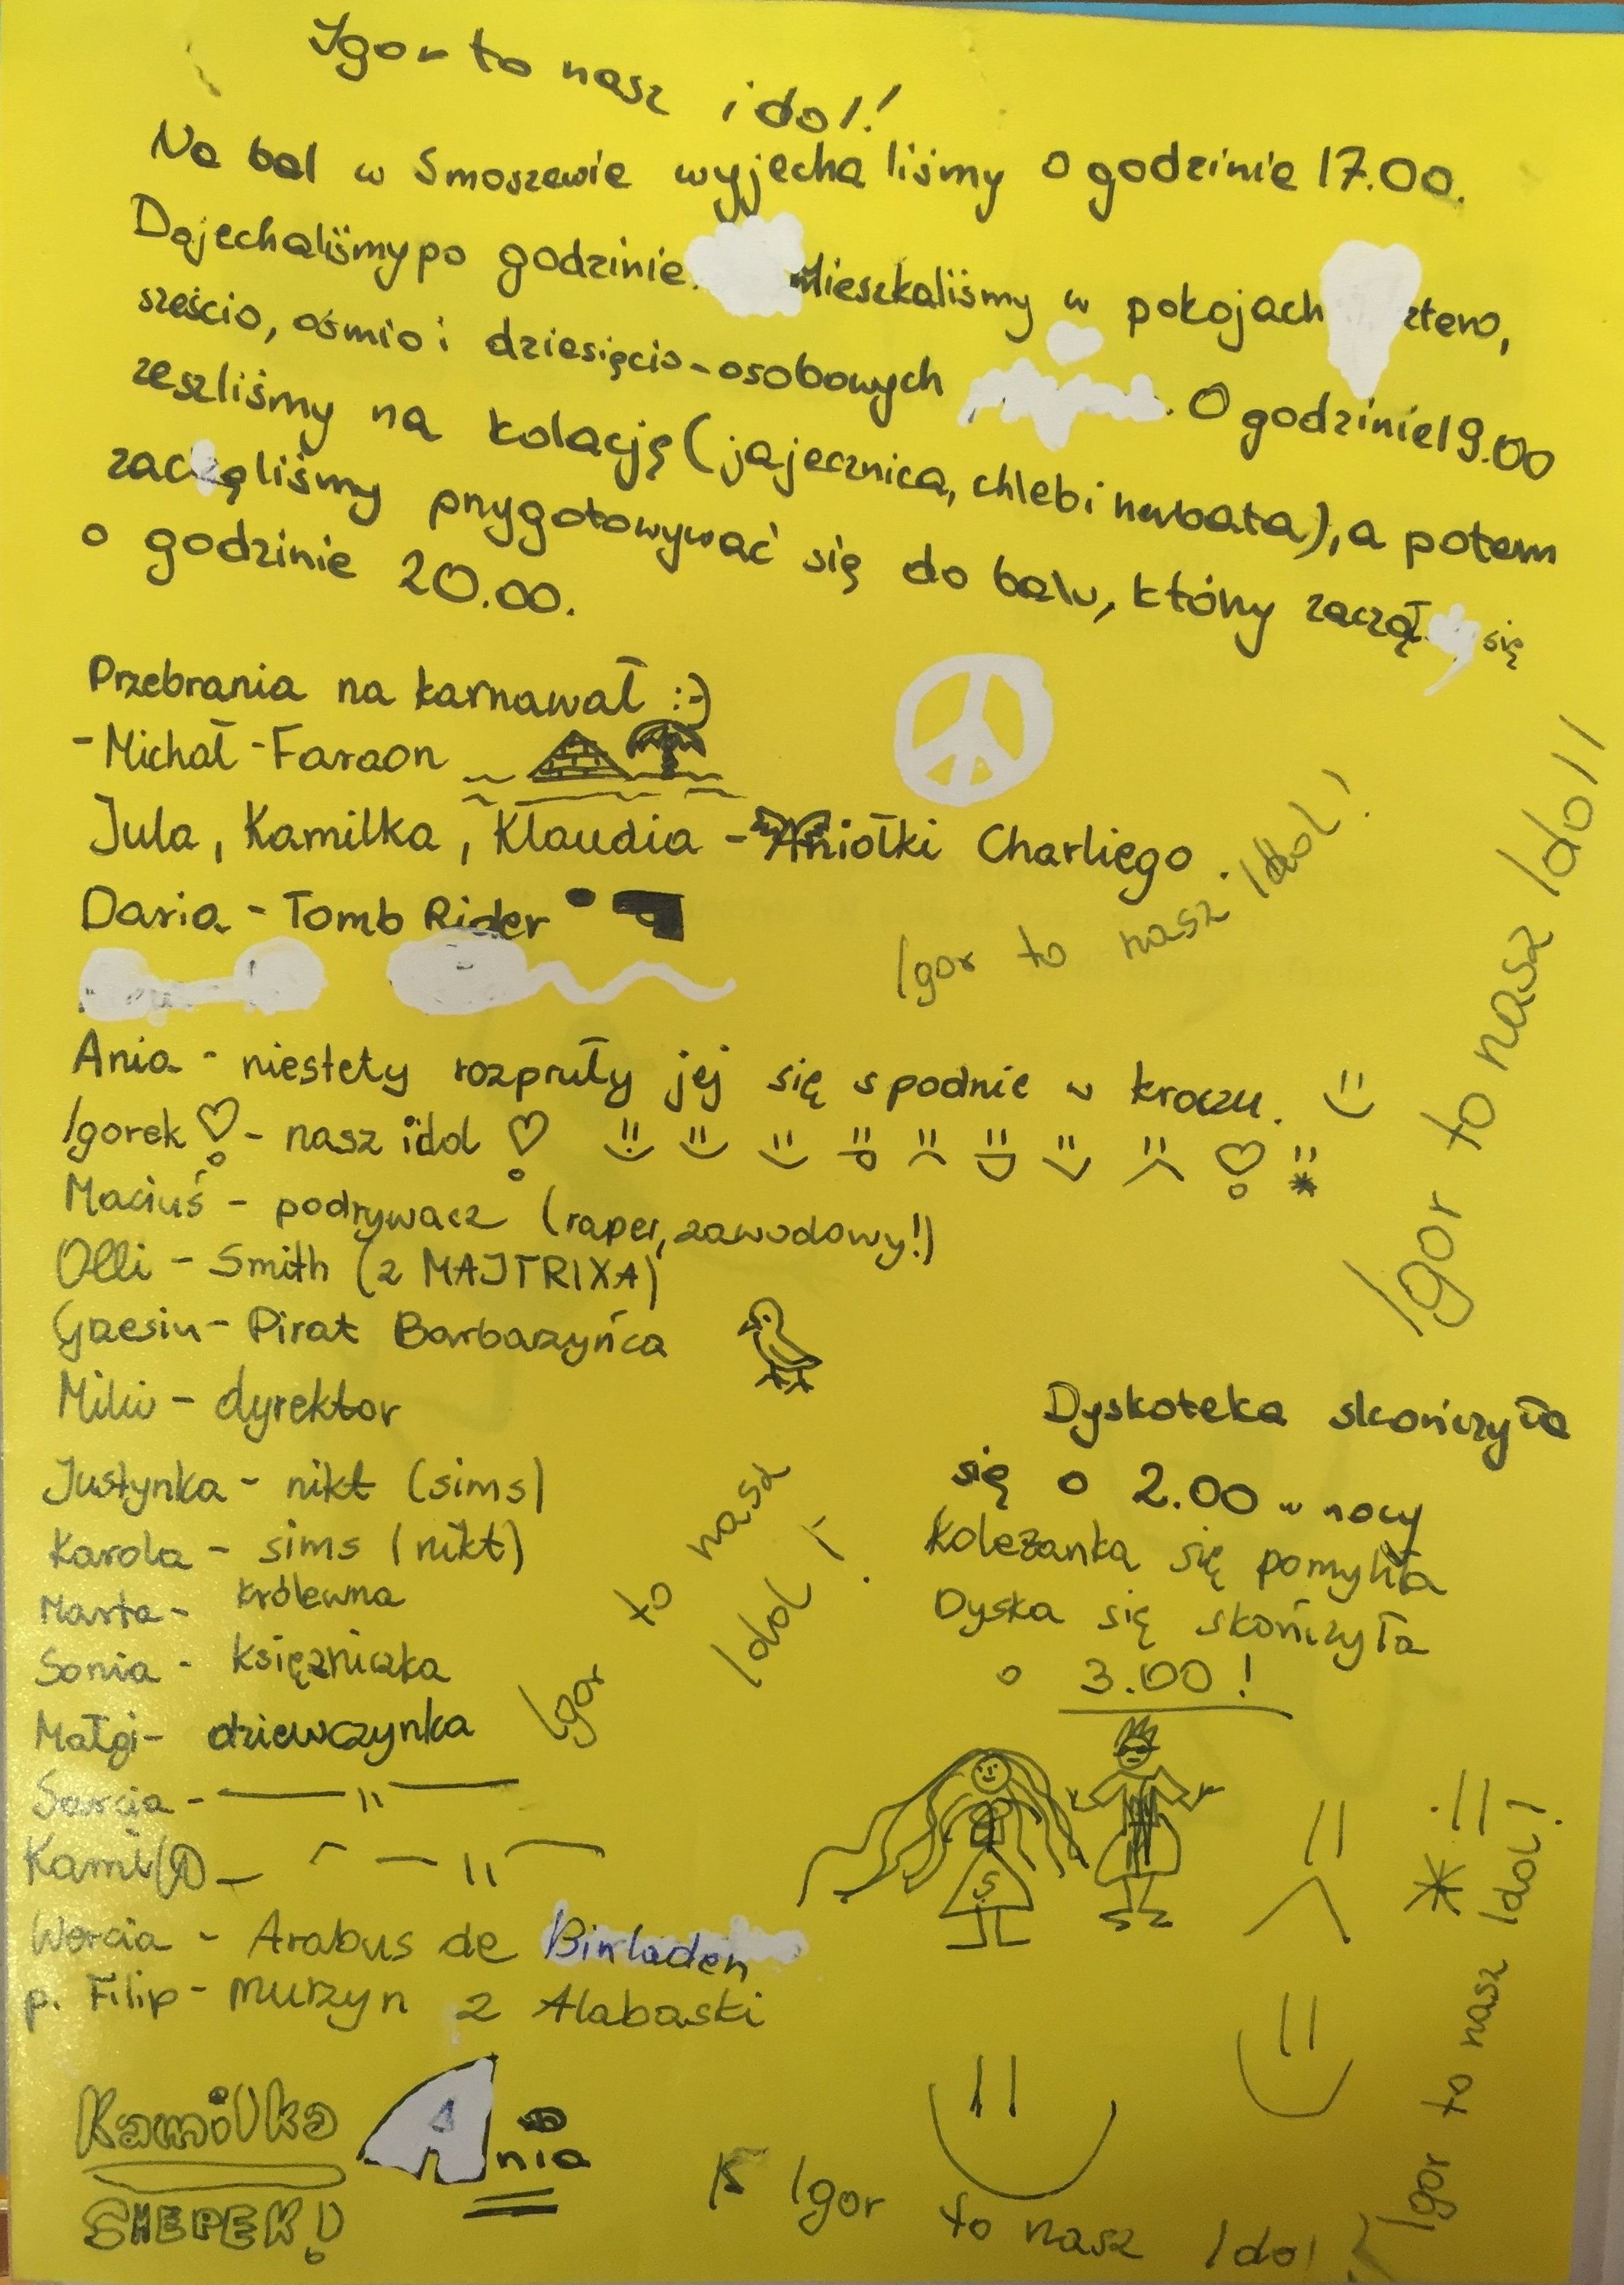 Igor to nasz idol!
Na bal w Smoszewie wyjechaliśmy o godzinie 17.00.
Dojechaliśmy po godzinie. Mieszkaliśmy w pokojach cztero,
sześcio, ośmio i dziesięcio-osobowych. O godzinie 19.00
zeszliśmy na kolację (jajecznica, chleb i herbata), a potem
zaczęliśmy przygotowywać się do balu, który zaczął się
o godzinie 20.00.
Przebrania na karnawał :-)
- Michał - Faraon
Jula, Kamilka, Klaudia - Aniołki Charliego.
Daria - Tomb Rider
Igor to nasz Idol!
Igor to nasz Idol!
Ania - niestety rozpruły jej się spodnie w kroczu.
Igorek - nasz idol
Maciuś - podrywacz (raper, zawodowy!)
Olli - Smith (z MAJTRIXA)
Grzesiu - Pirat Barbarzyńca
Miliu - dyrektor
Justynka - nikt (sims)
Karola - sims (nikt)
Marta - królewna
Sonia - księżniczka
Małgi - dziewczynka
Sarcia - —— 11 ——
Kamil(A) - — 11 —
Wercia - Arabus de Binladen
p. Filip - murzyn z Alabaski
Igor to nasz
Idol!
Dyskoteka skończyła
się o 2.00 w nocy
Koleżanka się pomyliła
Dyska się skończyła
o 3.00!
S
Igor to nasz Idol!
Kamilka
SHEPEK!
Ania
K Igor to nasz Idol!